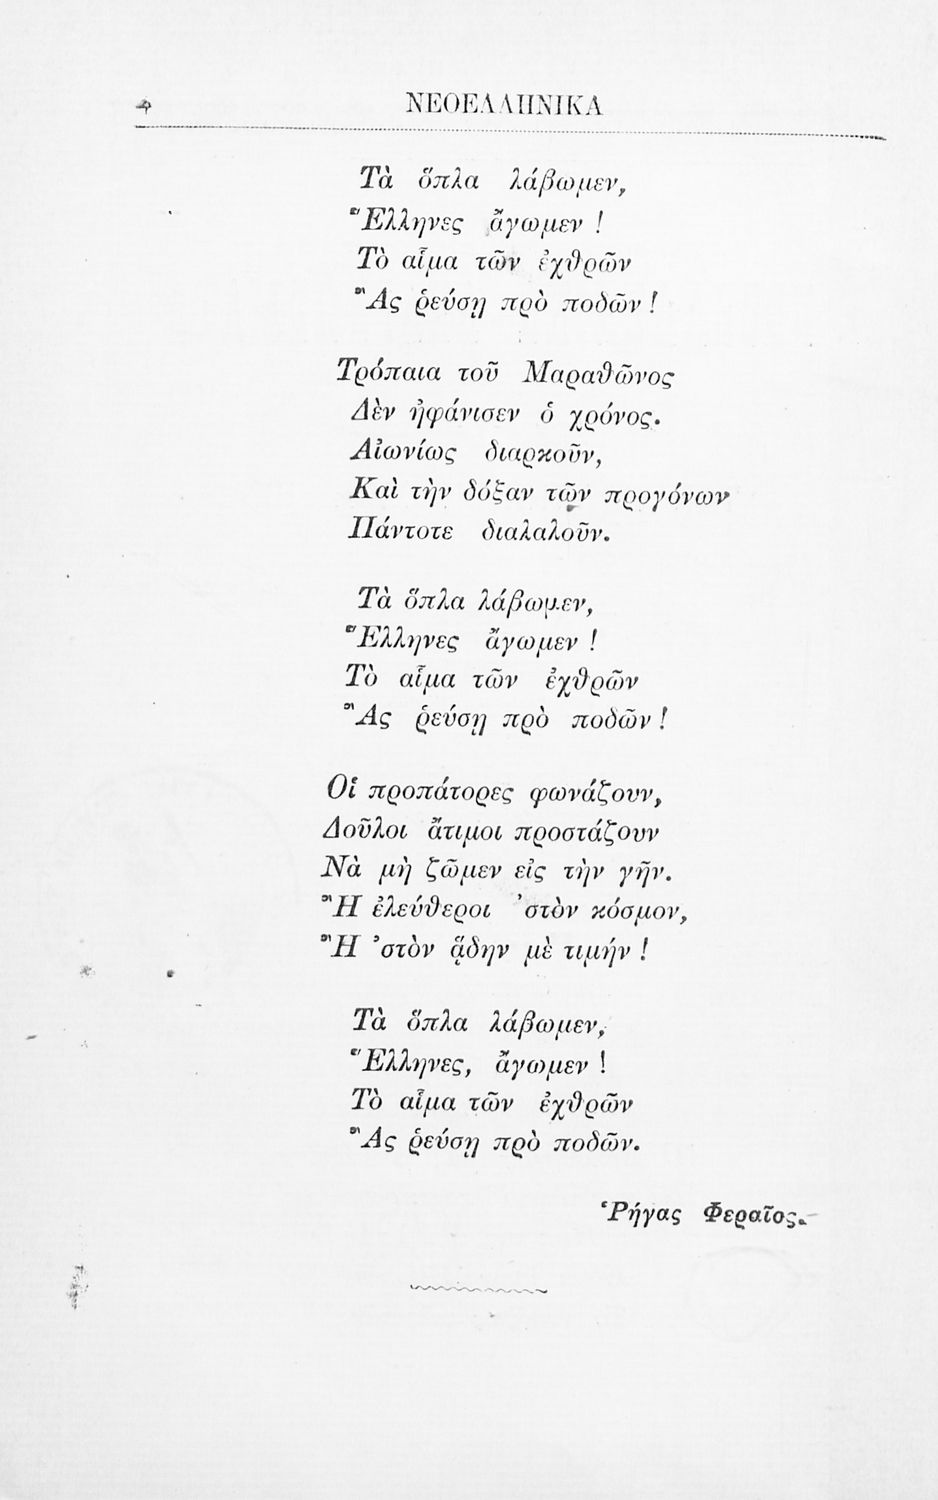 4 ΝΕΟΕΛΛΗΝΙΚΑ
Τὰ ὅπλα λάβωμεν,
Ἕλληνες ἄγωμεν !
Τὸ αἷμα τῶν ἐχθρῶν
Ἂς ῥεύσῃ πρὸ ποδῶν !
Τρόπαια τοῦ Μαραθῶνος
Δὲν ἠφάνισεν ὁ χρόνος.
Αἰωνίως διαρκοῦν,
Καὶ τὴν δόξαν τῶν προγόνων
Πάντοτε διαλαλοῦν.
Τὰ ὅπλα λάβωμεν,
Ἕλληνες ἄγωμεν !
Τὸ αἷμα τῶν ἐχθρῶν
Ἂς ῥεύσῃ πρὸ ποδῶν !
Οἱ προπάτορες φωνάζουν,
Δοῦλοι ἄτιμοι προστάζουν
Νὰ μὴ ζῶμεν εἰς τὴν γῆν.
Ἢ ἐλεύθεροι 'στὸν κόσμον,
Ἢ 'στὸν ᾅδην μὲ τιμήν !
Τὰ ὅπλα λάβωμεν,
Ἕλληνες, ἄγωμεν !
Τὸ αἷμα τῶν ἐχθρῶν
Ἂς ῥεύσῃ πρὸ ποδῶν.
Ῥήγας Φεραῖος.